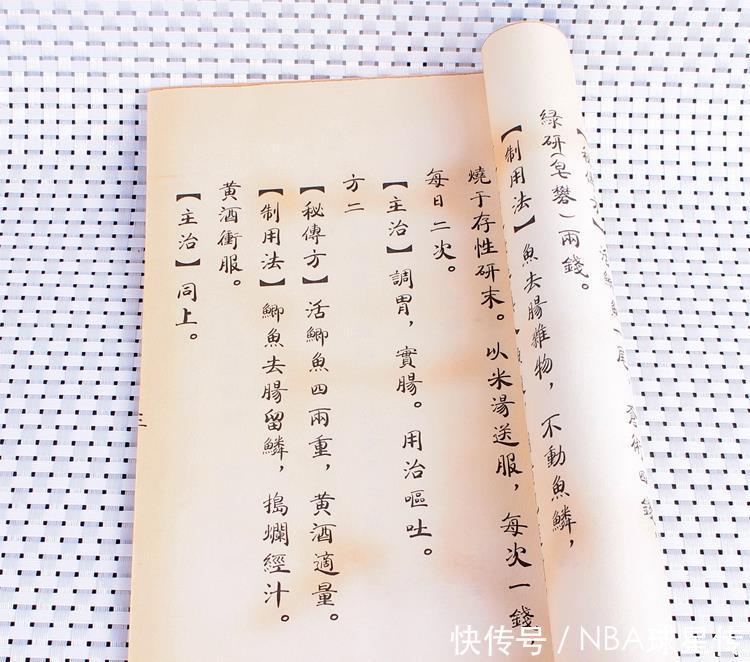 綠研(皂礬)兩錢。
【制用法】魚去腸雜物，不動魚鱗，
燒干存性研末。以米湯送服，每次一錢，
每日二次。
【主治】調胃，實腸。用治嘔吐。
方二
【秘傳方】活鯽魚四兩重，黃酒適量。
【制用法】鯽魚去腸留鱗，搗爛經汁。
黃酒衝服。
【主治】同上。
快传号/NBA球星传